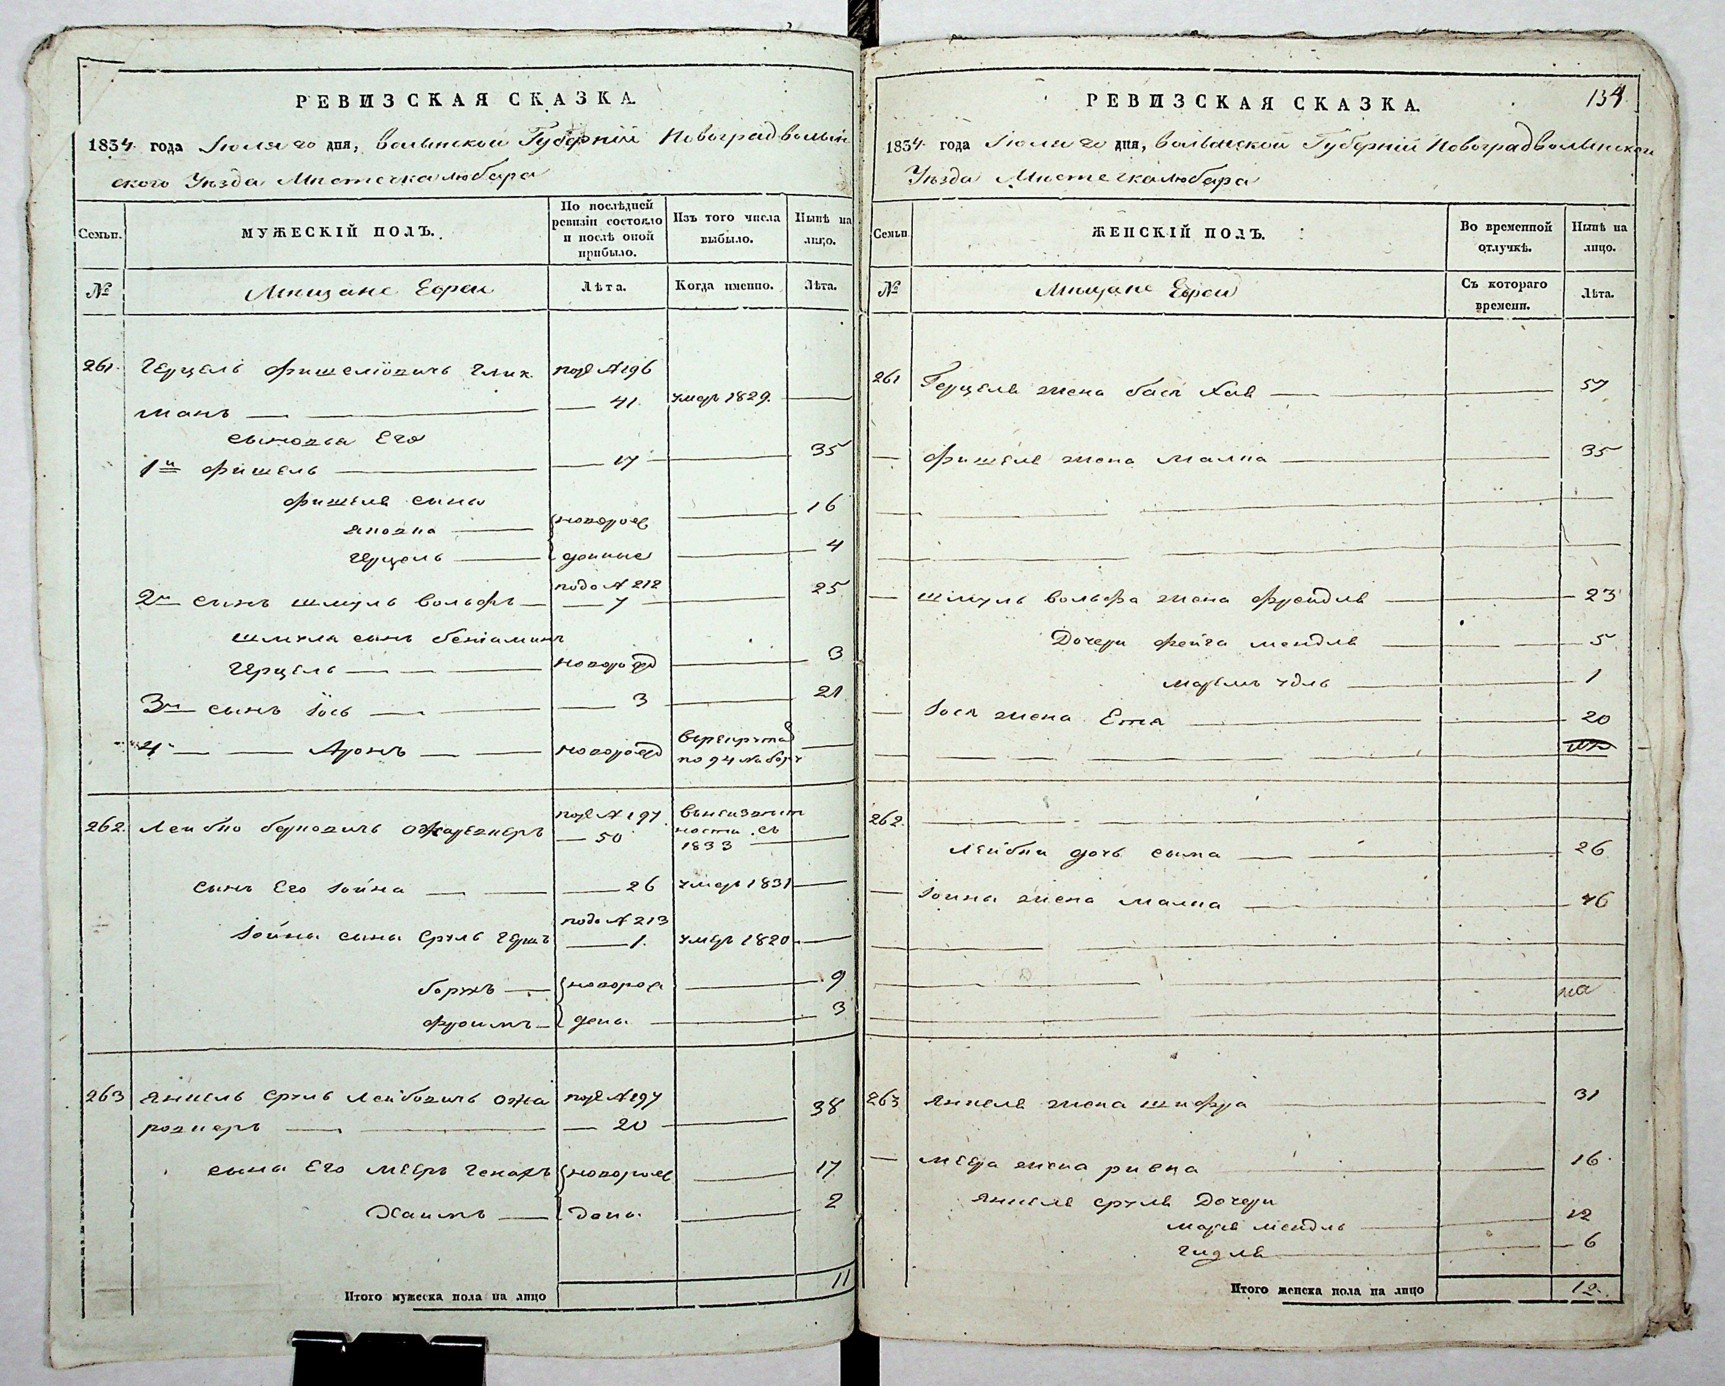 РЕВИЗСКАЯ СКАЗКА.
1834 года Іюля го дня, Волынской Губерніи Новоградволын
ского Уѣзда Мистечка Любара
Семьи.
МУЖЕСКІЙ ПОЛЪ.
По послѣдней ревизіи состояло и послѣ оной прибыло.
Изъ того числа выбыло.
Нынѣ на лицо.
№
Мищане Евреи
Лѣта.
Когда именно.
Лѣта.
261 Герцель Фишелювичъ Глик подъ № 196
манъ 41 умеръ 1829
сыновья Его
1й Фишель 17 35
Фишеля сыны
Янкна новорож 16
Герцель денные 4
подъ № 212
2й сынъ Шмуль Вольфъ 7 25
Шмуля сынъ Беніаминъ
Герцель новорожд 3
3й сынъ Іось 3 21
4 Аронъ новорожд въ рекруты
по 94 набору
262 Лейбко Берковичъ подъ № 197 50
въ неизвѣст
ности съ
1833
сынъ Его Іойна 26 умеръ 1831
подъ № 213
Іойны сыны Сруль Герш 1 умеръ 1820
Борухъ новорож 9
Фроимъ дены 3
263 Янкель Сруль Лейбовичъ Ожа подъ № 197
ровнеръ 20 38
сыны Его Мееръ новорож 17
Хаимъ дены 2
Итого мужеска пола на лицо 11
134
РЕВИЗСКАЯ СКАЗКА.
1834 года Іюля го дня, Волынской Губерніи Новоградволынской
Уѣзда Мистечка Любара
Семьи.
ЖЕНСКІЙ ПОЛЪ.
Во временной отлучкѣ.
Нынѣ на лицо.
№
Мищане Евреи
Съ котораго времени.
Лѣта.
261 Герцеля жена Бася Хая 57
Фишеля жена Малка 35
Шмуль Вольфа жена Фрейдля 23
Дочери Фейга Мендля 5
Марьямъ Удль 1
Іося жена Етя 20
262
Лейбки дочь Сыма 26
Іойны жена Малка 46
263 Янкеля жена Шифра 31
Меера жена Ривка 16
Янкеля Сруля Дочери
Маря Мендль 12
Гидля 6
Итого женска пола на лицо 12